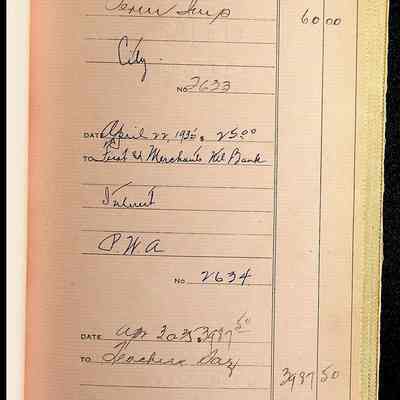 60 00
City.
No 2633
DATE April 22, 1935. $ 25 00
TO First & Merchants Nat Bank
Interest
P.W.A
No 2634
DATE Apr 30 35 3987 50
TO Teachers Day
3987 50